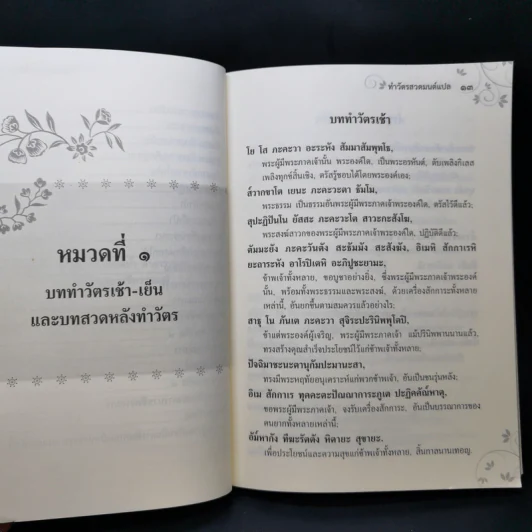 หมวดที่ ๑
บททำวัตรเช้า-เย็น
และบทสวดหลังทำวัตร
ทำวัตรสวดมนต์แปล ๑๓
บททำวัตรเช้า
โย โส ภะคะวา อะระหัง สัมมาสัมพุทโธ,
พระผู้มีพระภาคเจ้านั้น พระองค์ใด, เป็นพระอรหันต์, ดับเพลิงกิเลส
เพลิงทุกข์สิ้นเชิง, ตรัสรู้ชอบได้โดยพระองค์เอง;
ส๎วากขาโต เยนะ ภะคะวะตา ธัมโม,
พระธรรม เป็นธรรมอันพระผู้มีพระภาคเจ้าพระองค์ใด, ตรัสไว้ดีแล้ว;
สุปะฏิปันโน ยัสสะ ภะคะวะโต สาวะกะสังโฆ,
พระสงฆ์สาวกของพระผู้มีพระภาคเจ้าพระองค์ใด, ปฏิบัติดีแล้ว;
ตัมมะยัง ภะคะวันตัง สะธัมมัง สะสังฆัง, อิเมหิ สักกาเรหิ
ยะถาระหัง อาโรปิเตหิ อะภิปูชะยามะ,
ข้าเจ้าทั้งหลาย, ขอบูชาอย่างยิ่ง, ซึ่งพระผู้มีพระภาคเจ้าพระองค์
นั้น, พร้อมทั้งพระธรรมและพระสงฆ์, ด้วยเครื่องสักการะทั้งหลาย
เหล่านี้, อันยกขึ้นตามสมควรแล้วอย่างไร;
สาธุ โน ภันเต ภะคะวา สุจิระปะรินิพพุโตปิ,
ข้าแต่พระองค์ผู้เจริญ, พระผู้มีพระภาคเจ้า แม้ปรินิพพานนานแล้ว,
ทรงสร้างคุณสำเร็จประโยชน์ไว้แก่ข้าเจ้าทั้งหลาย;
ปัจฉิมาชะนะตานุกัมปะมานะสา,
ทรงมีพระหฤทัยอนุเคราะห์แก่พวกข้าเจ้า, อันเป็นชนรุ่นหลัง;
อิเม สักกาเร ทุคคะตะปัณณาการะภูเต ปะฏิคคัณ๎หาตุ,
ขอพระผู้มีพระภาคเจ้า, จงรับเครื่องสักการะ, อันเป็นบรรณาการของ
คนยากทั้งหลายเหล่านี้;
อัม๎หากัง ทีฆะรัตตัง หิตายะ สุขายะ.
เพื่อประโยชน์และความสุขแก่ข้าเจ้าทั้งหลาย, สิ้นกาลนานเทอญ.